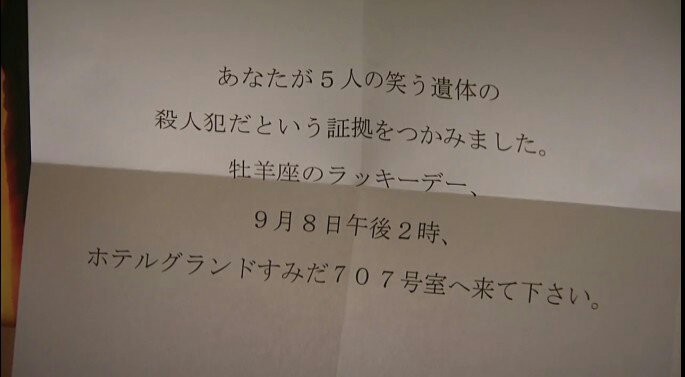 あなたが５人の笑う遺体の
殺人犯だという証拠をつかみました。
牡羊座のラッキーデー、
９月８日午後２時、
ホテルグランドすみだ７０７号室へ来て下さい。